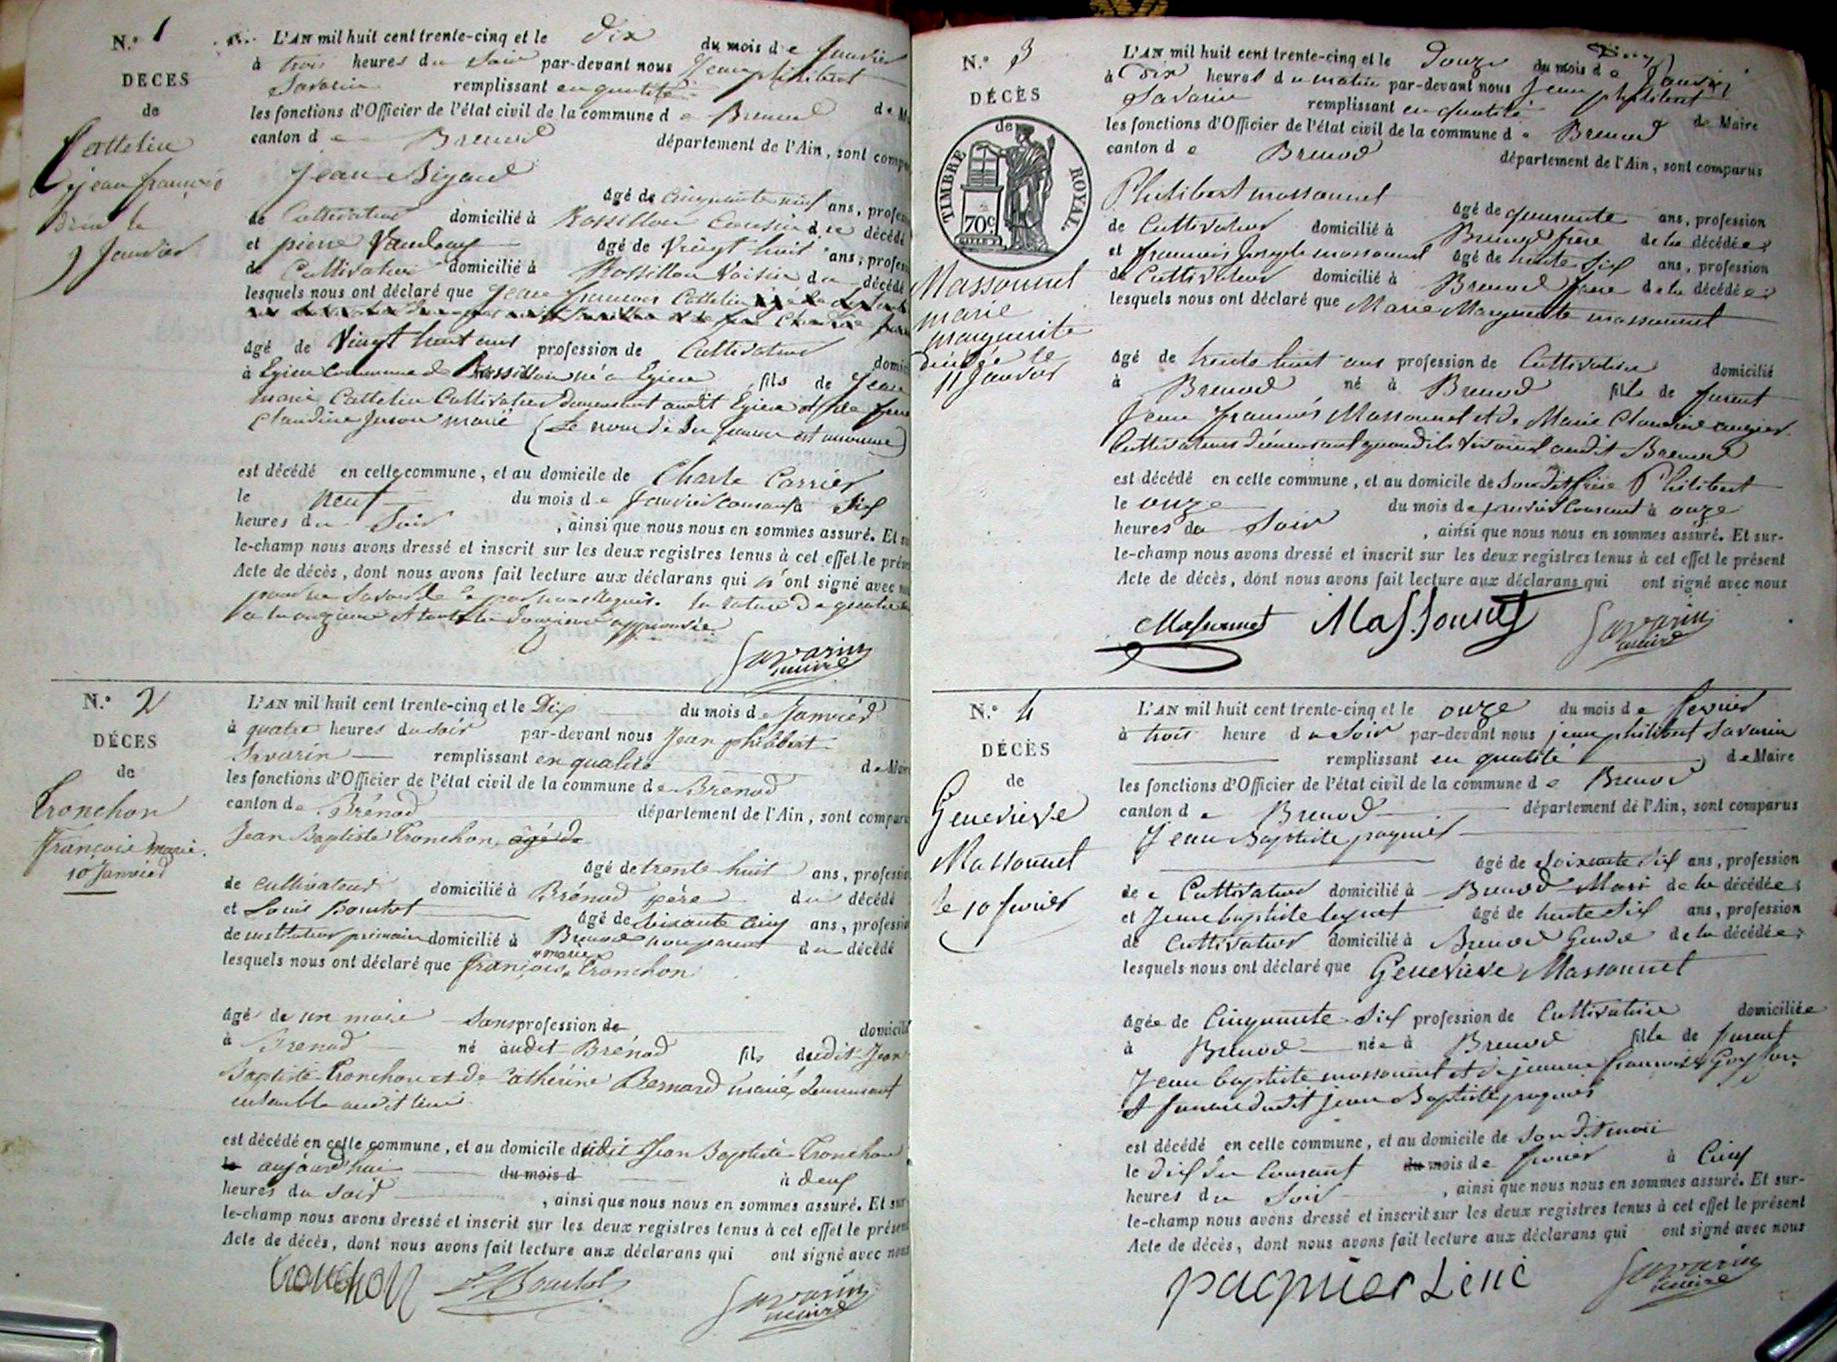 N.° 1
DÉCES
de
Cattelin
jean françois
décédé le
9 Janvier
L'AN mil huit cent trente-cinq et le dix du mois de Janvier
à trois heures du soir par-devant nous Jean philibert
Savarin remplissant en qualité
les fonctions d'Officier de l'état civil de la commune de Brenod de M
canton de Brenod département de l'Ain, sont compa
Jean
agé de cinquante neuf ans, profess
de Cultivateur domicilié à Rossillon Cousin du décédé
et pierre agé de Vingt huit ans, profess
de Cultivateur domicilié à Rossillon Voisin du décédé
lesquels nous ont déclaré que Jean francois Cattelin
agé de Vingt huit ans profession de Cultivateur domici
à Egieu Commune de Rossillon né à Egieu fils de Jean
marie Cattelin Cultivateur Demeurant audit Egieu et de
Claudine Juron marié (Le nom de Sa femme est inconnu)
est décédé en cette commune, et au domicile de Charle Carrier
le neuf du mois de Janvier Courant à Six
heures du Soir, ainsi que nous nous en sommes assuré. Et su
le-champ nous avons dressé et inscrit sur les deux registres tenus à cet effet le prése
Acte de décès, dont nous avons fait lecture aux déclarans qui n'ont signé avec nou
pour ne Savoir de ce par nous Requis. la rature de quatre
a la onzieme et toute la douzieme approuvée
Savarin
maire
N.° 2
DÉCES
de
Tronchon
François marie.
10 Janvier
L'AN mil huit cent trente-cinq et le Dix du mois de Janvier
à quatre heures du soir par-devant nous Jean philibert
Savarin remplissant en qualité de Maire
les fonctions d'Officier de l'état civil de la commune de Brenod
canton de Brénod département de l'Ain, sont comparu
Jean Baptiste Tronchon agé de
agé de trente huit ans, profession
de cultivateur domicilié à Brénod père du décédé
et Louis Boutot agé de soixante cinq ans, profession
de instituteur primaire domicilié à Brenod non parent du décédé
lesquels nous ont déclaré que françois marie Tronchon
agé de un mois sans profession de domicilié
à Brenod né audit Brénod fils dudit Jean
Baptiste Tronchon et de Catherine Bernard mariés demeurant
ensemble audit lieu
est décédé en cette commune, et au domicile dudit Jean Baptiste Tronchon
le aujourd'hui du mois d à deux
heures du soir, ainsi que nous nous en sommes assuré. Et sur
le-champ nous avons dressé et inscrit sur les deux registres tenus à cet effet le présent
Acte de décès, dont nous avons fait lecture aux déclarans qui ont signé avec nous
tronchon Boutot Savarin
maire
N.° 3
DÉCÈS
de
TIMBRE ROYAL.
70 c
Massonnet
marie
marguerite
décédée le
11 Janvier
L'AN mil huit cent trente-cinq et le Douze du mois de Janvier
à Dix heures du matin par-devant nous Jean philibert
Savarin remplissant en qualité de Maire
les fonctions d'Officier de l'état civil de la commune de Brenod
canton de Brenod département de l'Ain, sont comparus
Philibert massonnet
agé de quarante ans, profession
de Cultivateur domicilié à Brenod frère de la décédée
et francois Joseph massonnet agé de trente six ans, profession
de Cultivateur domicilié à Brenod frère de la décédée
lesquels nous ont déclaré que Marie Marguerite massonnet
agé de trente huit ans profession de Cultivatrice domicilié
à Brenod né à Brenod fille de furent
Jean francois Massonnet et de Marie Claudine
Cultivateurs demeurant quand ils vivaient audit Brenod
est décédé en cette commune, et au domicile de Son dit frère Philibert
le onze du mois de janvier Courant à onze
heures du Soir, ainsi que nous nous en sommes assuré. Et sur-
le-champ nous avons dressé et inscrit sur les deux registres tenus à cet effet le présent
Acte de décès, dont nous avons fait lecture aux déclarans qui ont signé avec nous
Massonnet Massonnet Savarin
maire
N.° 4
DÉCÈS
de
Genevieve
Massonnet
le 10 fevrier
L'AN mil huit cent trente-cinq et le onze du mois de fevrier
à trois heure du Soir par-devant nous jean philibert Savarin
remplissant en qualité de Maire
les fonctions d'Officier de l'état civil de la commune de Brenod
canton de Brenod département de l'Ain, sont comparus
Jean Baptiste paquier
agé de Soixante Six ans, profession
de Cultivateur domicilié à Brenod Mari de la décédée
et Jean baptiste agé de trente Six ans, profession
de Cultivateur domicilié à Brenod Gendre de la décédée
lesquels nous ont déclaré que Geneviève Massonnet
agée de Cinquante Six profession de Cultivatrice domiciliée
à Brenod née à Brenod fille de furent
Jean baptiste massonnet et de jeanne francoise
et femme dudit jean Baptiste paquier
est décédé en cette commune, et au domicile de Son dit mari
le dix du Courant du mois de fevrier à Cinq
heures du Soir, ainsi que nous nous en sommes assuré. Et sur-
le-champ nous avons dressé et inscrit sur les deux registres tenus à cet effet le présent
Acte de décès, dont nous avons fait lecture aux déclarans qui ont signé avec nous
paquier Savarin
maire